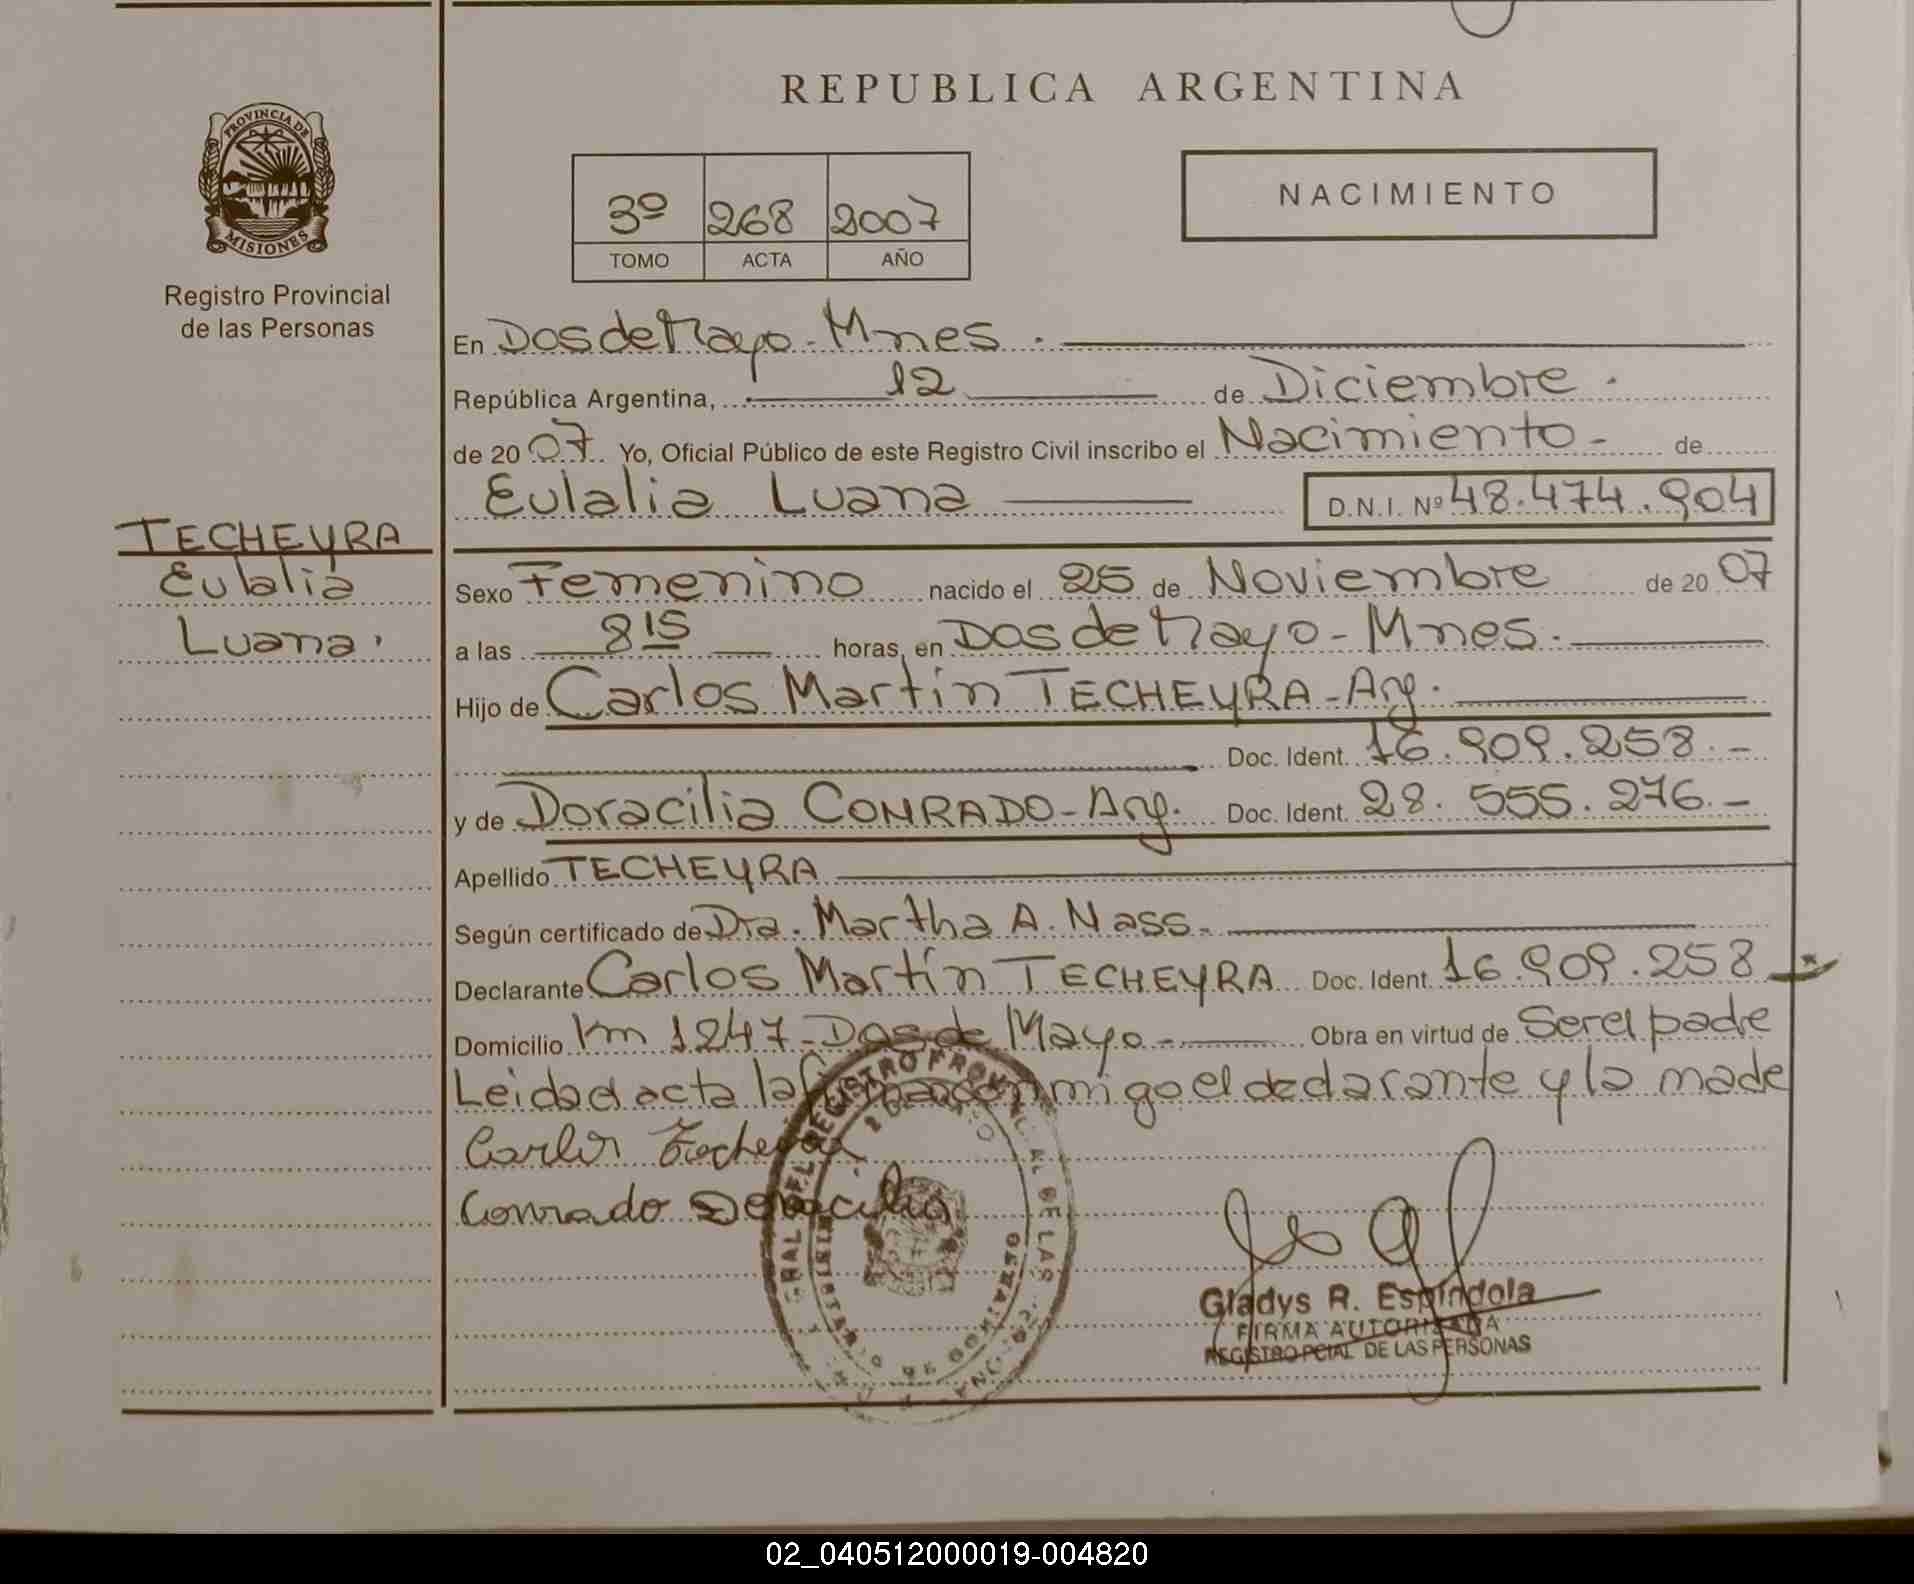 REPUBLICA ARGENTINA
PROVINCIA DE
MISIONES
Registro Provincial
de las Personas
NACIMIENTO
3º 268 2007
TOMO ACTA AÑO
En Dos de Mayo - Mnes.
República Argentina, 12 de Diciembre.
de 2007 Yo, Oficial Público de este Registro Civil inscribo el Nacimiento - de
Eulalia Luana D.N.I. Nº 48.474.904
TECHEYRA
Eulalia
Luana.
Sexo Femenino nacido el 25 de Noviembre de 2007
a las 8 15 horas, en Dos de Mayo - Mnes.
Hijo de Carlos Martín TECHEYRA - Arg.
Doc. Ident. 16.909.258. -
y de Doracilia CONRADO - Arg. Doc. Ident. 28.555.276. -
Apellido TECHEYRA
Según certificado de Dra. Martha A. Nass.
Declarante Carlos Martín TECHEYRA Doc. Ident. 16.909.258
Domicilio Km 1247 - Dos de Mayo - Obra en virtud de Ser el padre
Leida el acta la firman conmigo el declarante y la madre
Carlos Techeyra
Conrado Doracilia
Gladys R. Espíndola
FIRMA AUTORIZADA
REGISTRO PCIAL DE LAS PERSONAS
02_040512000019-004820